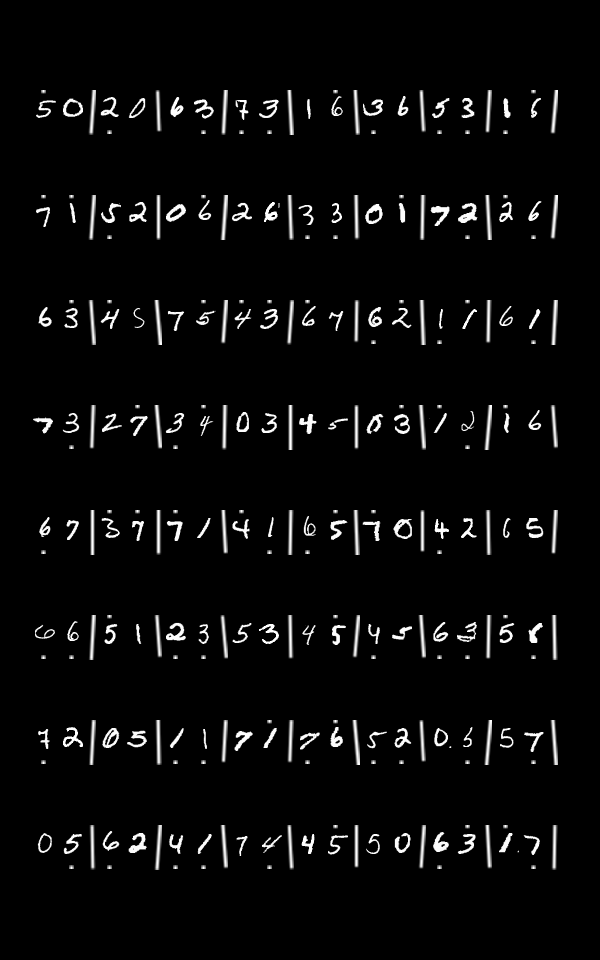 5̇ 0 | 2̣ 0 | 6 3̣ | 7̣ 3̣ | 1 6̇ | 3̣ 6 | 5̣ 3̣ | 1̇ 6̇ |
7̇ 1̇ | 5̣ 2 | 0 6̇ | 2 6 | 3̣ 3̣ | 0 1̇ | 7 2̣ | 2̇ 6̣ |
6 3̇ | 4̇ 5 | 7 5̇ | 4̇ 3̇ | 6̇ 7 | 6̣ 2̇ | 1 1̇ | 6 1̣ |
7 3̣ | 2 7̇ | 3̣ 4̇ | 0 3 | 4 5̇ | 0 3̇ | 1̇ 2̣ | 1̇ 6 |
6̣ 7 | 3̇ 7̇ | 7̇ 1 | 4 1̣ | 6̣ 5̇ | 7̇ 0 | 4̣ 2 | 6 5 |
6̣ 6̣ | 5̇ 1 | 2̣ 3̣ | 5 3 | 4 5̇ | 4̣ 5 | 6̣ 3̣ | 5̇ 8̣ |
7̣ 2 | 0 5 | 1̣ 1̣ | 7 1̇ | 7 6̇ | 5̣ 2̣ | 0 5 | 5 7̣ |
0 5̣ | 6̣ 2 | 4̣ 1̣ | 7 4̇ | 4 5̇ | 5 0 | 6̣ 3̇ | 1̇ 7̣ |